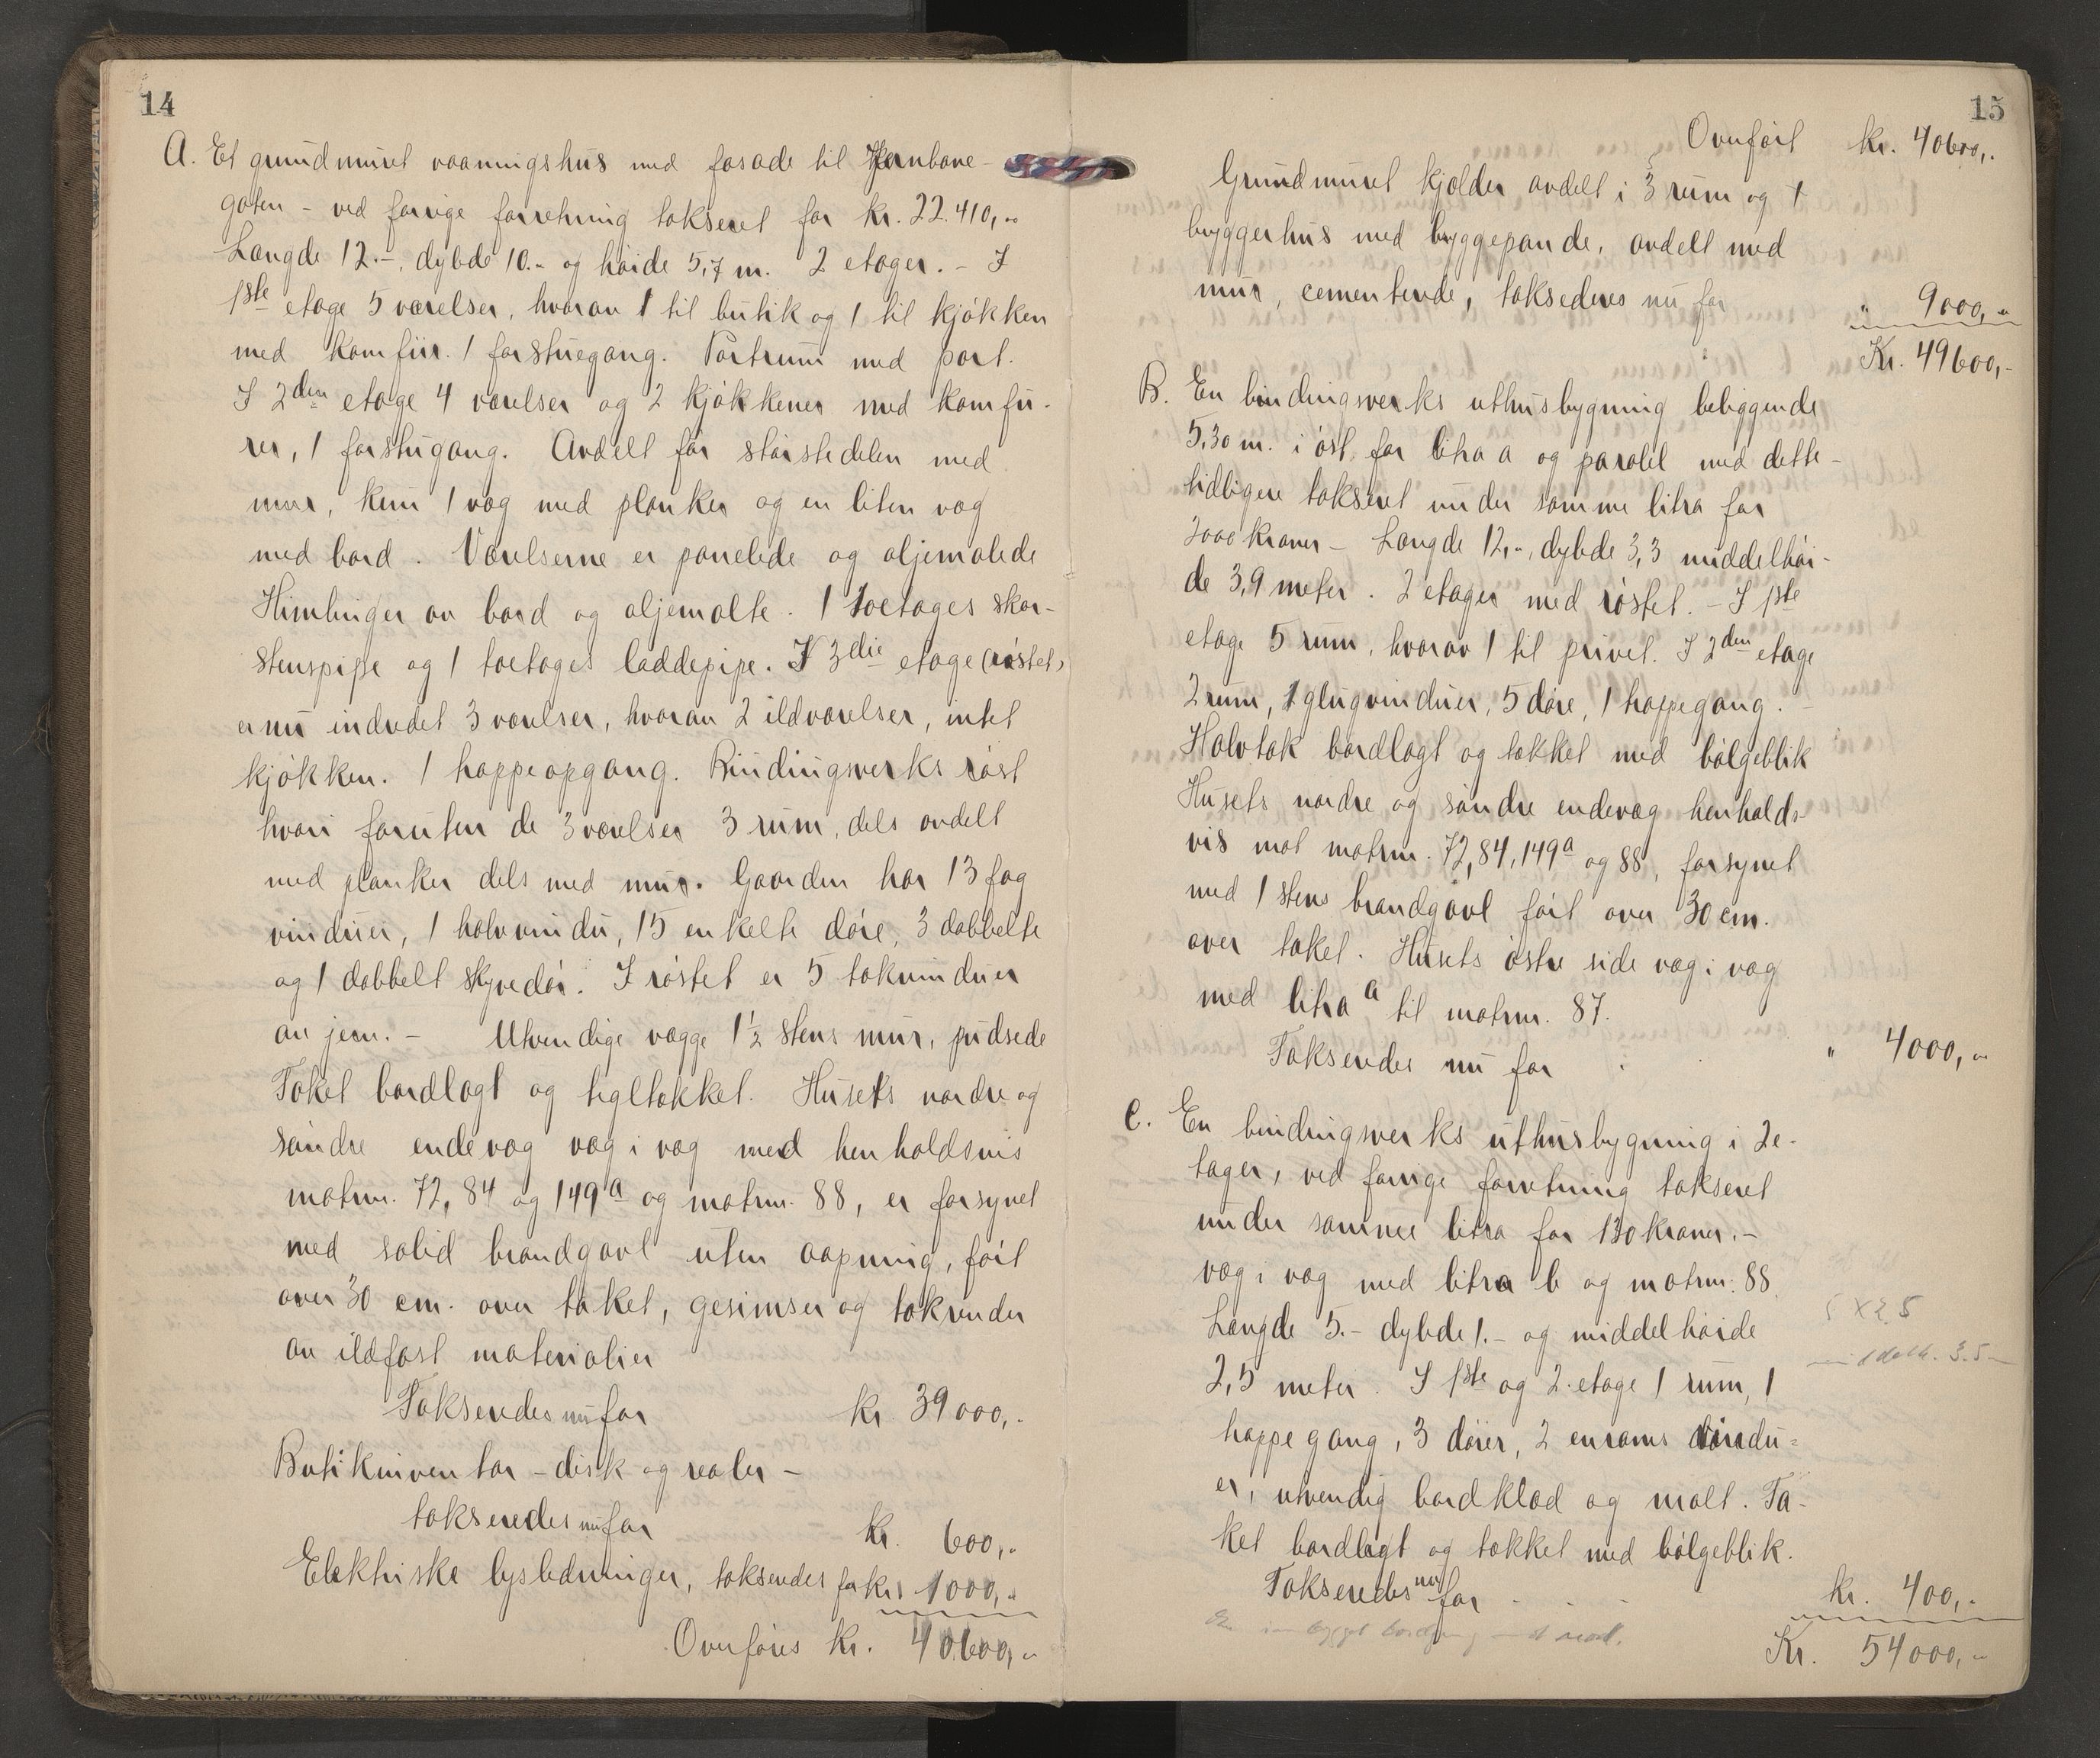 14
A. Et grundmuret vaaningshus med fasade til Jernbane-
gaten - ved forrige forretning takseret for kr. 22.410,-
Længde 12.-, dybde 10.- og høide 5,7 m. 2 etager. - I
1ste etage 5 værelser, hvorav 1 til butik og 1 til kjøkken
med komfur. 1 forstuegang. Portrum med port.
I 2den etage 4 værelser og 2 kjøkkener med komfu-
rer, 1 forstugang. Avdelt for størstedelen med
mur, kun 1 væg med planker og en liten væg
med bord. Værelserne er panelede og oljemalede
Himlinger av bord og oljemalte. 1 toetages skor-
stenspipe og 1 toetages laddepipe. I 3die etage (røstet)
er nu indredet 3 værelser, hvorav 2 ildværelser, intet
kjøkken. 1 trappeopgang. Bindingsverks røst
hvori foruten de 3 værelser 3 rum, dels avdelt
med planker dels med mur. Gaarden har 13 fag
vinduer, 1 halvvindu, 15 enkelte døre, 3 dobbelte
og 1 dobbelt skyvedør. I røstet er 5 takvinduer
av jern. - Utvendige vægge 1½ stens mur, pudsede
Taket bordlagt og tegltækket. Husets nordre og
søndre endevæg væg i væg med henholdsvis
matrnr. 72, 84 og 149a og matrnr. 88, er forsynet
med solid brandgavl uten aapning, ført
over 30 cm. over taket, gesimser og takrender
av ildfast materialier
Takseredes nu for kr. 39000,-
Butikinventar - disk og reoler -
takseredes nu for kr. 600,-
Elektriske lysledninger, takseredes for kr. 1000,-
Overføres kr. 40600,-
15
Overført kr. 40600,-
Grundmuret kjelder avdelt i 3 rum og 1
bryggerhus med bryggepande, avdelt med
mur, cementerte, takseredes nu for " 9000,-
Kr. 49600,-
B. En bindingsverks uthusbygning beliggende
5,30 m. i øst for litra a og paralel med dette -
tidligere takseret under samme litra for
2000 kroner - Længde 12,-, dybde 3,3 middelhøi-
de 3,9 meter. 2 etager med røstet. - I 1ste
etage 5 rum, hvorav 1 til privet. I 2den etage
2 rum, 1 glugvinduer, 5 døre, 1 trappegang.
Halvtak bordlagt og tækket med bølgeblik
Husets nordre og søndre endevæg henholds-
vis mot matrnr. 72, 84, 149a og 88, forsynet
med 1 stens brandgavl ført over 30 cm.
over taket. Husets østre side væg i væg
med litra a til matrnr. 87.
Takseredes nu for " 4000,-
C. En bindingsverks uthusbygning i 2 e-
tager, ved forrige forretning takseret
under samme litra for 130 kroner. -
væg i væg med litra b og matrnr. 88.
5 X 2,5
Længde 5.- dybde 1.- og middelhøide
middelh. 3.5 -
2,5 meter. I 1ste og 2. etage 1 rum, 1
trappegang, 3 dører, 2 enrams vindu-
er, utvendig bordklæd og malt. Ta-
ket bordlagt og tækket med bølgeblik.
Takseredes nu for - - - kr. 400,-
Kr. 54000,-